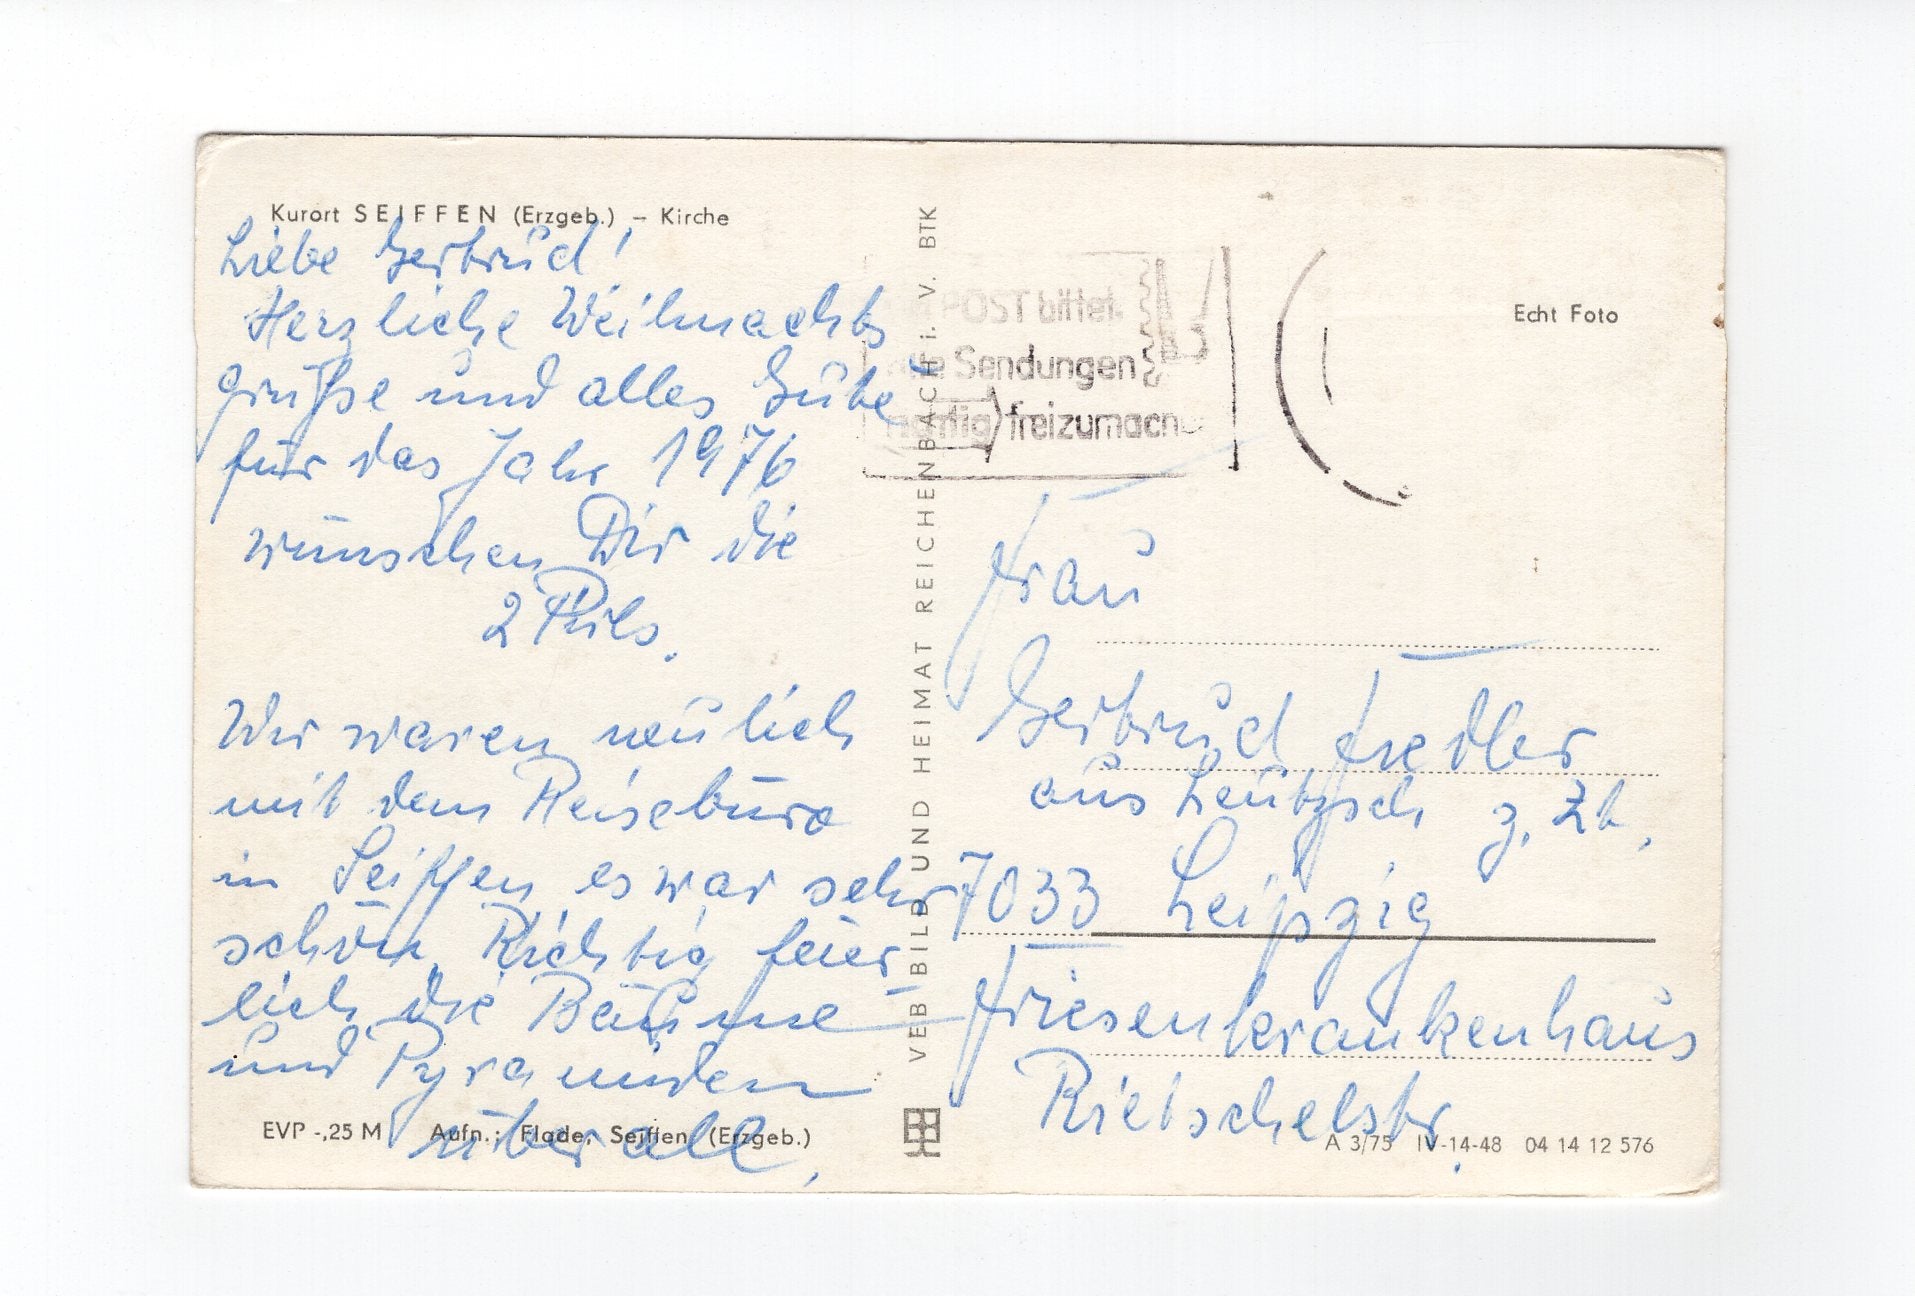 Kurort SEIFFEN (Erzgeb.) – Kirche
Liebe Gertrud!
Herzliche Weihnachts
grüße und alles Gute
für das Jahr 1976
wünschen Dir die
2 Pils.
Wir waren neulich
mit dem Reisebüro
in Seiffen es war sehr
schön. Richtig feier-
lich die Bäume
und Pyramiden
überall.
EVP -,25 M Aufn.: Flade, Seiffen (Erzgeb.)
VEB BILD UND HEIMAT REICHENBACH i. V. BTK
POST bittet
alle Sendungen
richtig freizumachen
Echt Foto
Frau
Gertrud Fiedler
aus Leutzsch z. Zt.
7033 Leipzig
Friesenkrankenhaus
Rietschelstr.
A 3/75 IV-14-48 04 14 12 576